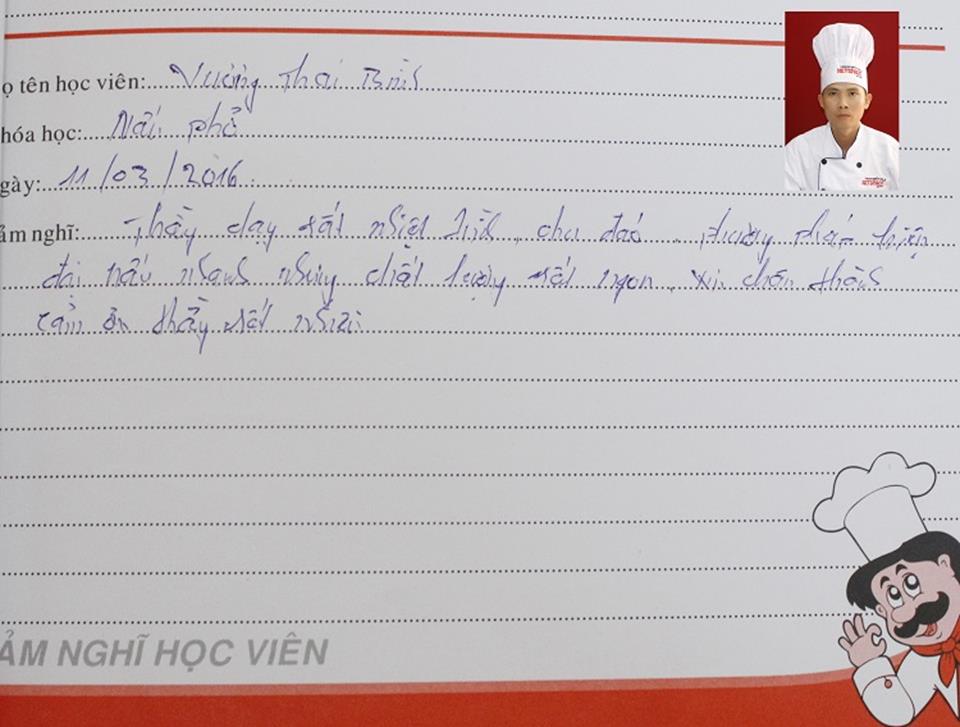 ọ tên học viên: Vương Thái Bình
hóa học: Nấu phở
gày: 11/03/2016.
ảm nghĩ: Thầy dạy rất nhiệt tình, chu đáo, phương pháp hiện
đại nấu nhanh nhưng chất lượng rất ngon, xin chân thành
cảm ơn thầy rất nhiều
ẢM NGHĨ HỌC VIÊN